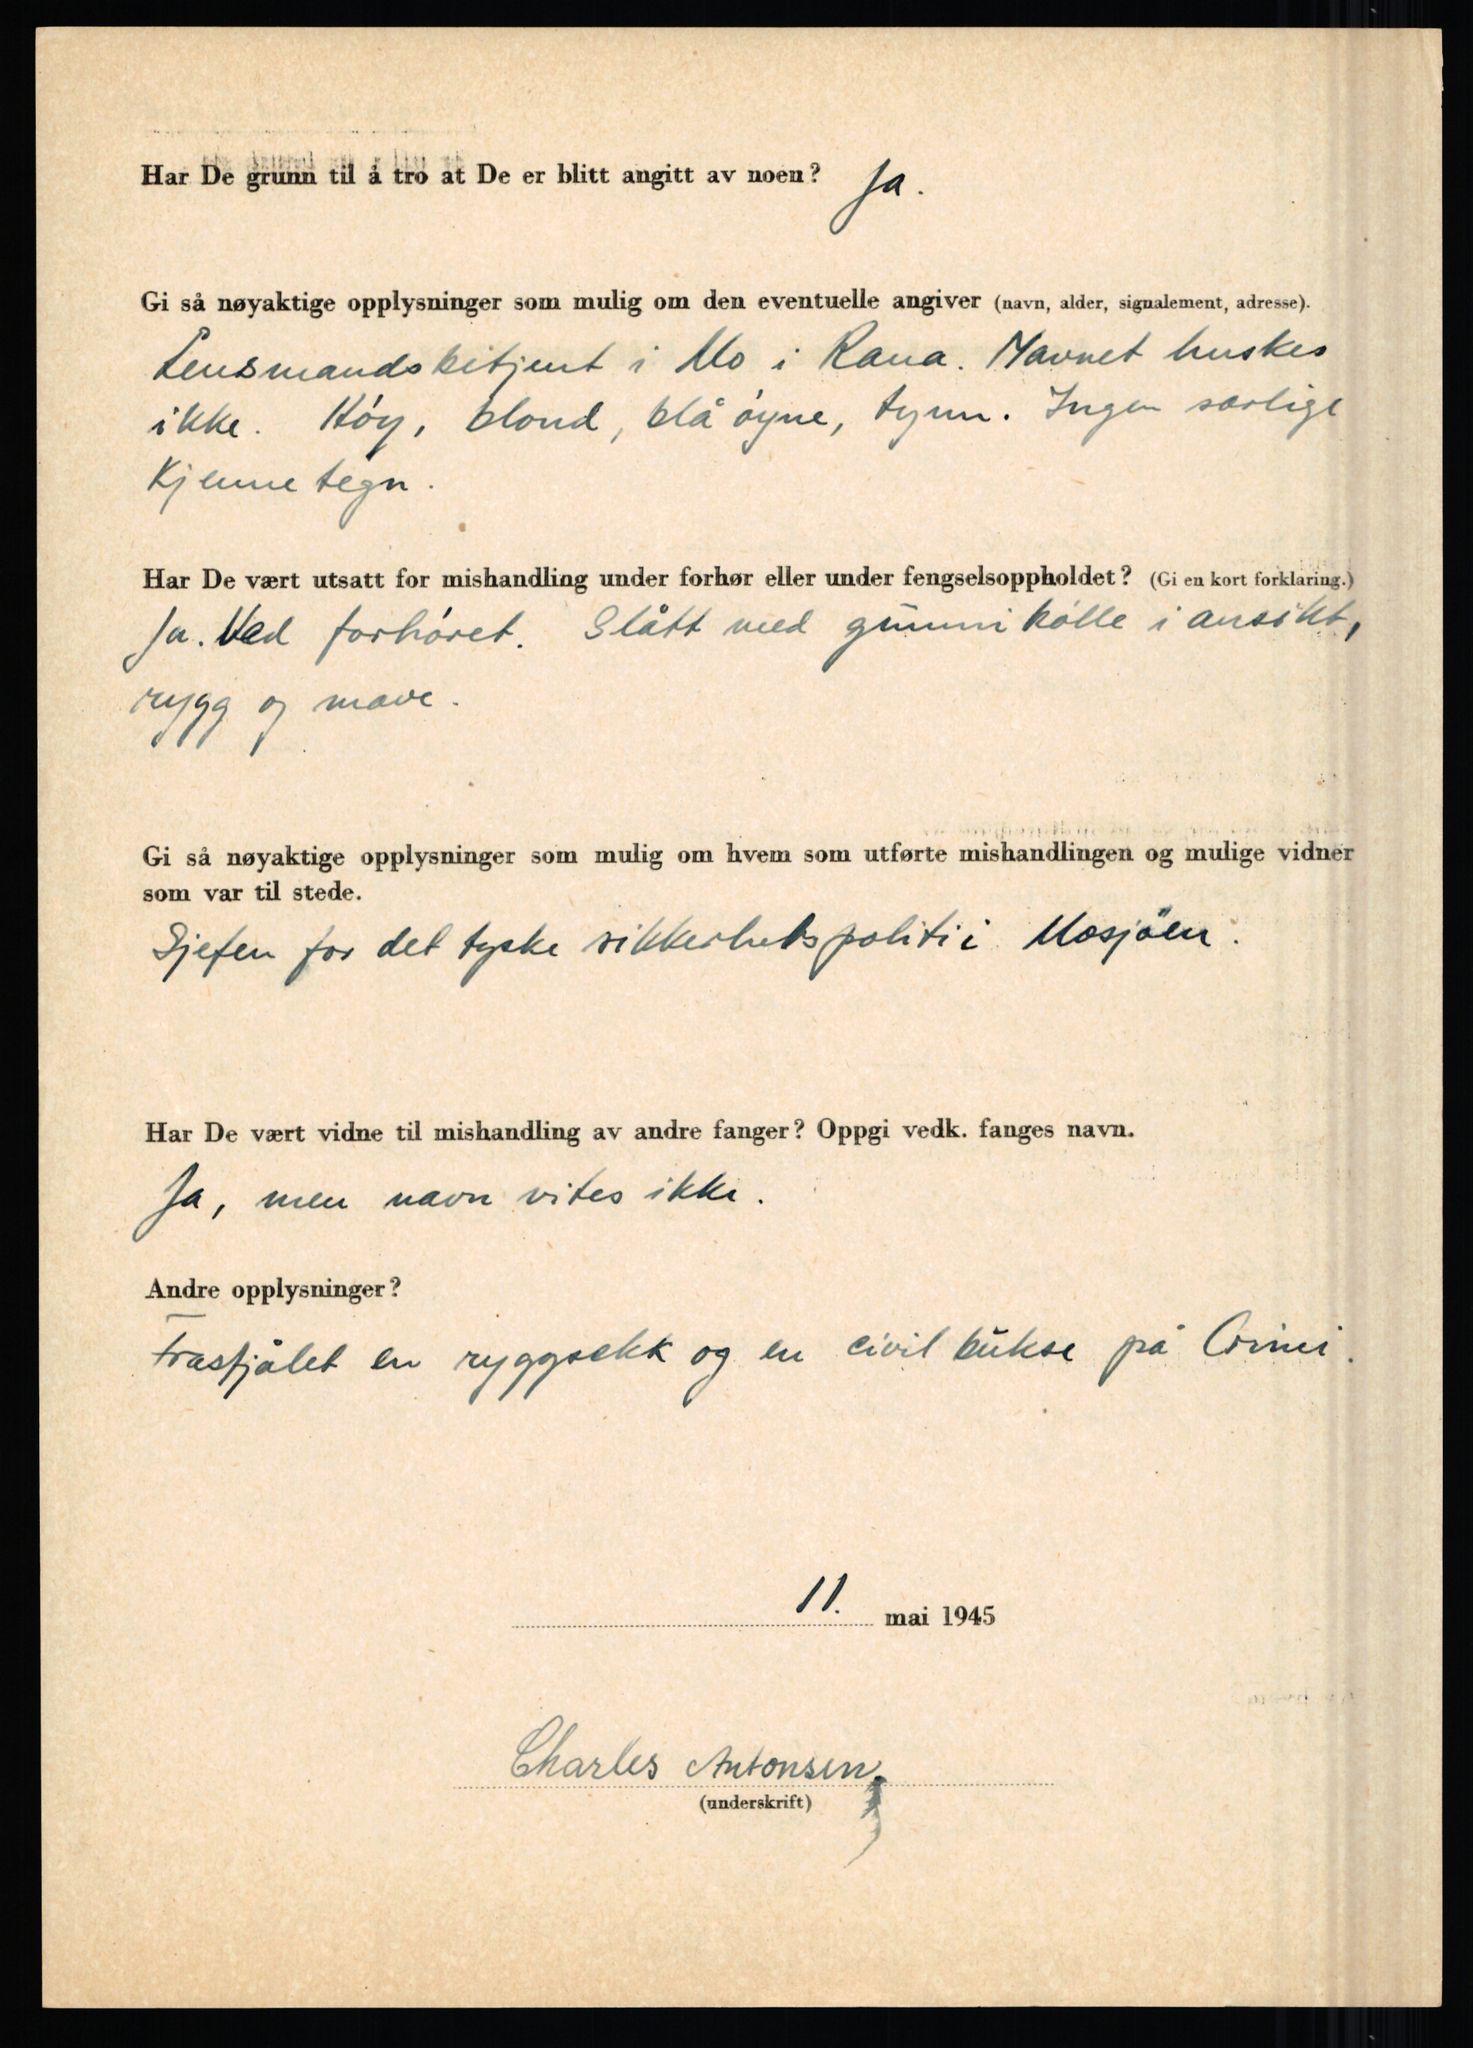 Har De grunn til å tro at De er blitt angitt av noen? Ja.
Gi så nøyaktige opplysninger som mulig om den eventuelle angiver (navn, alder, signalement, adresse).
Lensmandsbetjent i Mo i Rana. Navnet huskes
ikke. Høy, blond, blå øyne, tynn. Ingen særlige
Kjennetegn.
Har De vært utsatt for mishandling under forhør eller under fengselsoppholdet? (Gi en kort forklaring.)
Ja. Ved forhøret. Slått med gummikølle i ansikt,
rygg og mave.
Gi så nøyaktige opplysninger som mulig om hvem som utførte mishandlingen og mulige vidner
som var til stede.
Sjefen for det tyske sikkerhetspoliti i Mosjöen.
Har De vært vidne til mishandling av andre fanger? Oppgi vedk. fanges navn.
Ja, men navn vites ikke.
Andre opplysninger?
Frastjålet en ryggsekk og en civil bukse på Crini.
11. mai 1945
Charles Antonsen
(underskrift)